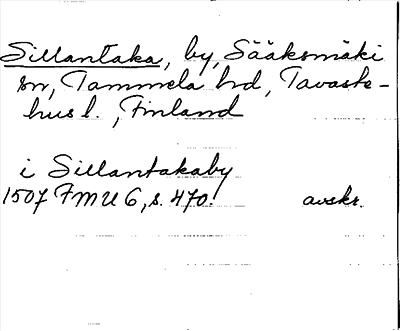 Sillantaka, by, Sääksmäki
sn, Tammela hd, Tavaste-
hus l., Finland
i Sillantakaby
1507 FMU 6, s. 470.
avskr.